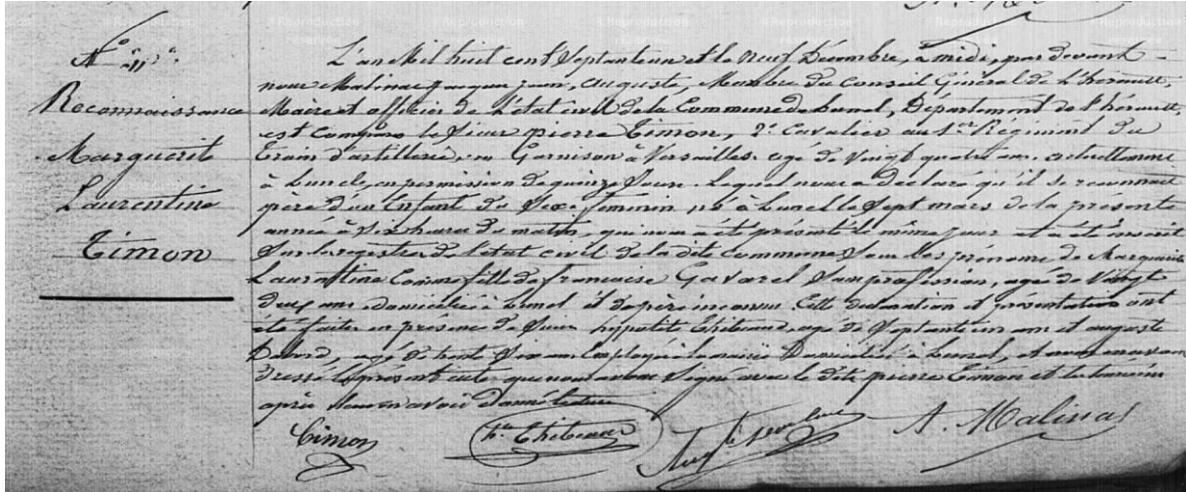 N° 115
Reconnaissance
Marguerit
Laurentine
Timon
L'an Mil huit cent Septanteun et le neuf Décembre, à midi, par devant
nous Malinas Jacques jean, auguste, Membre du Conseil Général de L'herault,
Maire et officier de l'état civil de la Commune de Lunel, Département de l'hérault,
est comparu le sieur pierre Timon, 2e Cavalier au 1er Régiment du
Train d'artillerie, en Garnison à Versailles, agé de Vingt quatre ans, actuellement
à Lunel, en permission de quinze Jours. Lequel nous a déclaré qu'il se reconnait
père d'un Enfant du Sexe feminin, né à Lunel le Sept mars de la presente
année à Six heures du matin, qui nous a été présenté le même jour et a été inscrit
Sur les registres de l'état civil de la dite commune Sous les prénoms de Marguerite
Laurentine Comme fille de francoise Gavarel Sans profession, agée de Vingt
deux ans domiciliée à Lunel et de père inconnu. Cette déclaration et présentation ont
été faites en présence de Sieurs hyppolite Thibeaud, agé de Septante un ans et auguste
agé de trente Six ans Employés à la mairie Domiciliés à Lunel, et nous avons
dressé le présent acte que nous avons Signé avec le dit pierre Timon et les temoins
après leur en avoir donné lecture
Timon
hte Thibeaud
A. Malinas